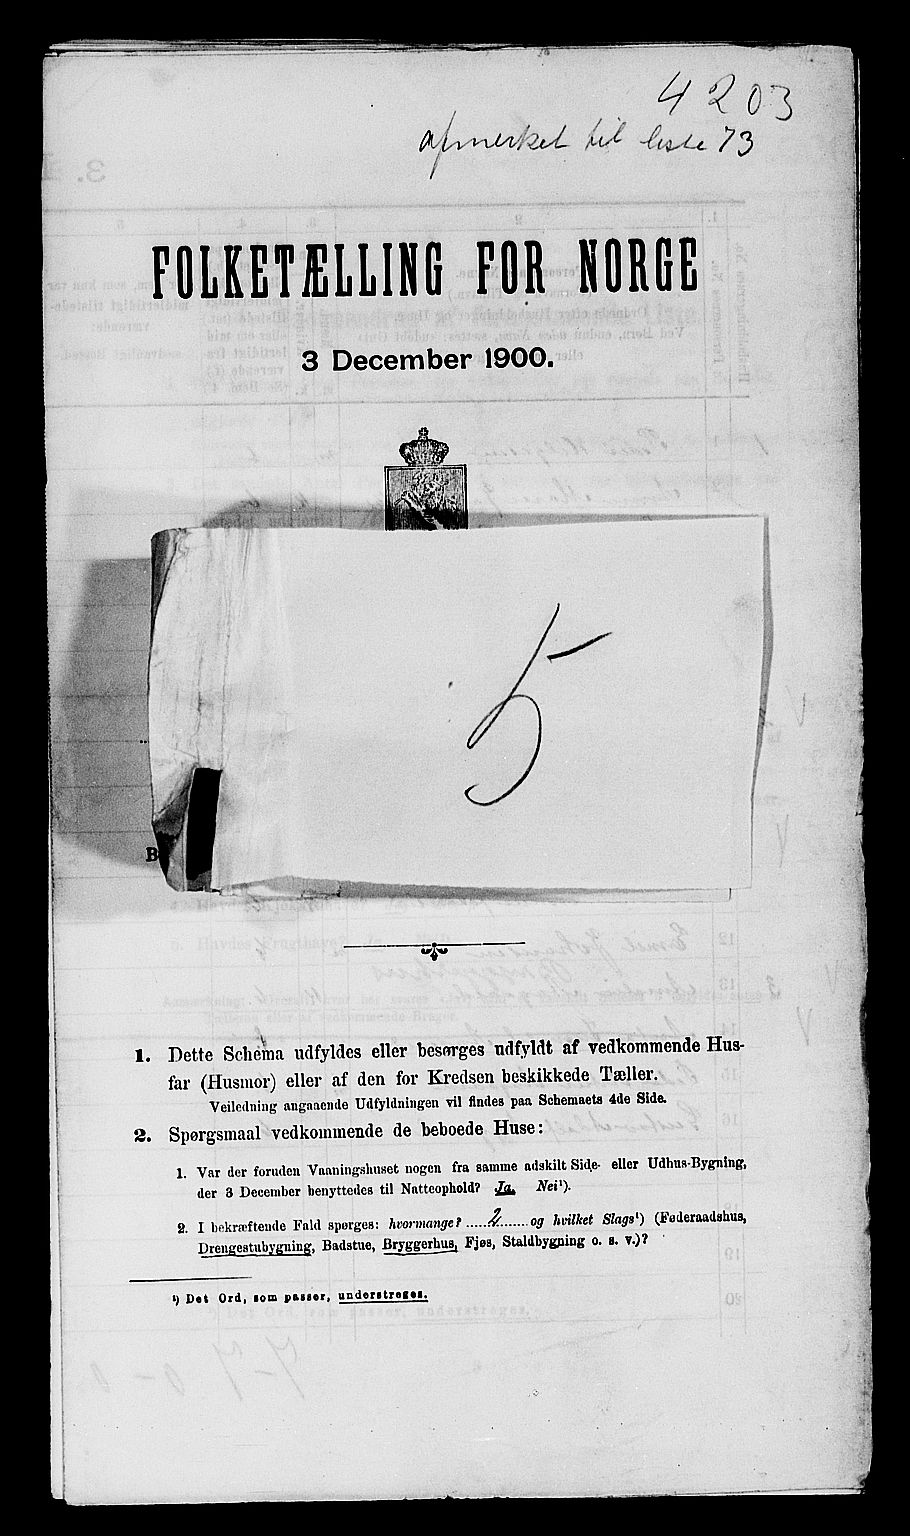 4203
afmerket til liste 73
FOLKETÆLLING FOR NORGE
3 December 1900.
5
B
1. Dette Schema udfyldes eller besørges udfyldt af vedkommende Hus-
far (Husmor) eller af den for Kredsen beskikkede Tæller.
Veiledning angaaende Udfyldningen vil findes paa Schemaets 4de Side.
2. Spørgsmaal vedkommende de beboede Huse:
1. Var der foruden Vaaningshuset nogen fra samme adskilt Side- eller Udhus-Bygning,
der 3 December benyttedes til Natteophold? Ja. Nei¹).
2. I bekræftende Fald spørges: hvormange? 2 og hvilket Slags¹) (Føderaadshus,
Drengestubygning, Badstue, Bryggerhus, Fjøs, Staldbygning o. s. v.)?
¹) Det Ord, som passer, understreges.